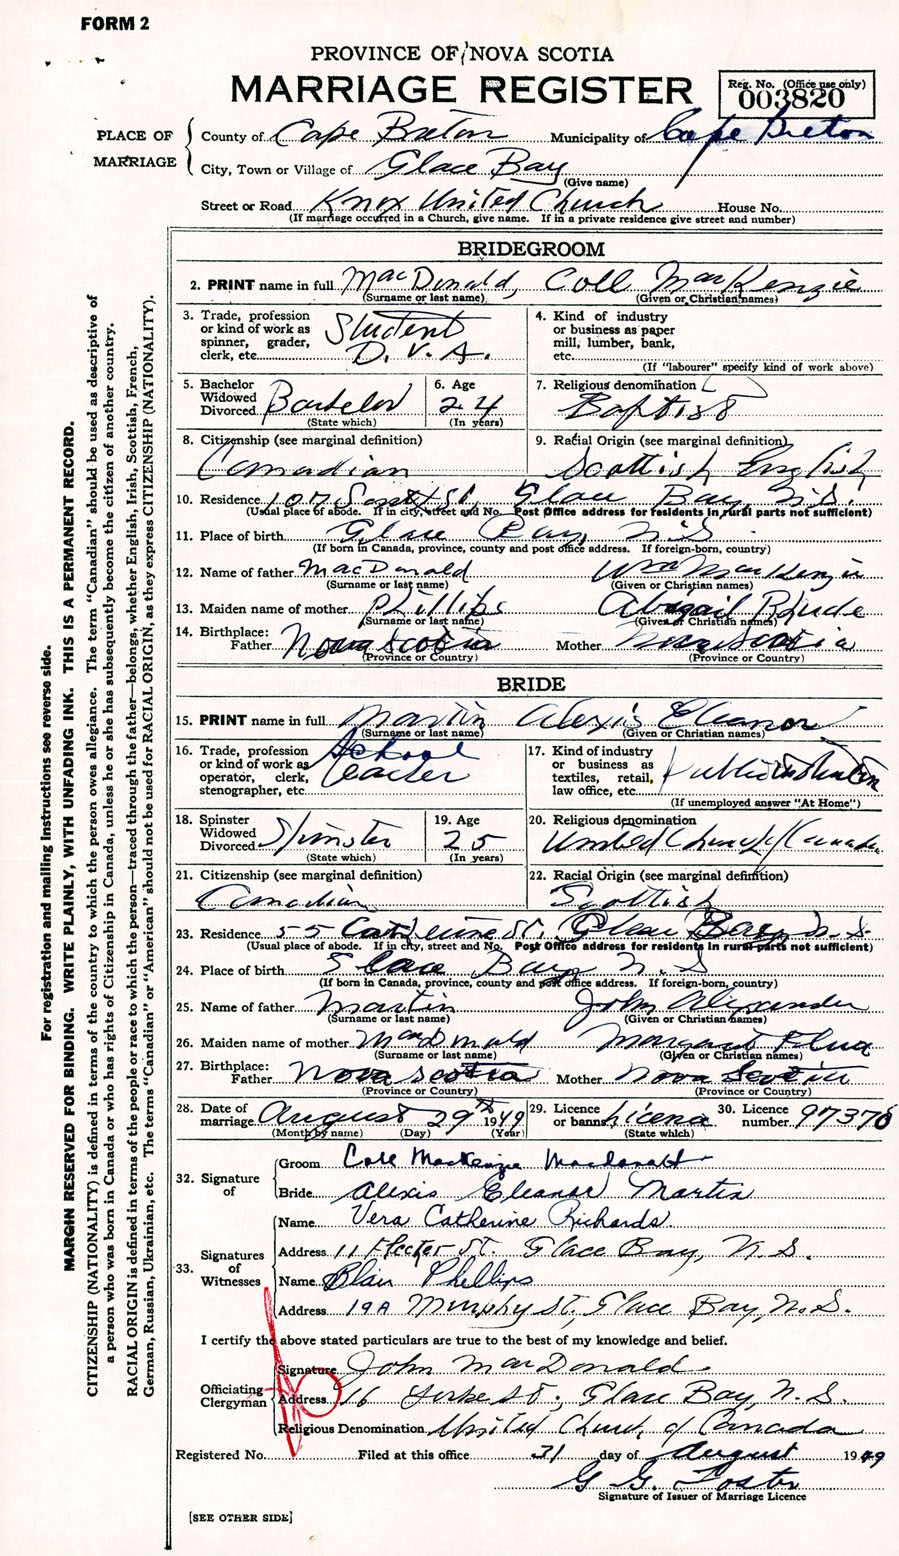 FORM 2
PROVINCE OF NOVA SCOTIA
MARRIAGE REGISTER
Reg. No. (Office use only)
003820
PLACE OF MARRIAGE
County of Cape Breton Municipality of Cape Breton
City, Town or Village of Glace Bay
(Give name)
Street or Road Knox United Church House No.
(If marriage occurred in a Church, give name. If in a private residence give street and number)
BRIDEGROOM
2. PRINT name in full MacDonald, Coll MacKenzie
(Surname or last name) (Given or Christian names)
3. Trade, profession or kind of work as spinner, grader, clerk, etc. Student D.V.A.
4. Kind of industry or business as paper mill, lumber, bank, etc.
(If "labourer" specify kind of work above)
5. Bachelor Widowed Divorced Bachelor
(State which)
6. Age 24
(In years)
7. Religious denomination Baptist
8. Citizenship (see marginal definition) Canadian
9. Racial Origin (see marginal definition) Scottish English
10. Residence St., Glace Bay, N.S.
(Usual place of abode. If in city, street and No. Post Office address for residents in rural parts not sufficient)
11. Place of birth Glace Bay, N.S.
(If born in Canada, province, county and post office address. If foreign-born, country)
12. Name of father MacDonald Wm MacKenzie
(Surname or last name) (Given or Christian names)
13. Maiden name of mother Phillips Abigail Rhude
(Surname or last name) (Given or Christian names)
14. Birthplace: Father Nova Scotia Mother Nova Scotia
(Province or Country) (Province or Country)
BRIDE
15. PRINT name in full Martin Alexis Eleanor
(Surname or last name) (Given or Christian names)
16. Trade, profession or kind of work as operator, clerk, stenographer, etc. School Teacher
17. Kind of industry or business as textiles, retail, law office, etc. Public
(If unemployed answer "At Home")
18. Spinster Widowed Divorced Spinster
(State which)
19. Age 25
(In years)
20. Religious denomination United Church of Canada
21. Citizenship (see marginal definition) Canadian
22. Racial Origin (see marginal definition) Scottish
23. Residence 55 Catherine St. Glace Bay, N.S.
(Usual place of abode. If in city, street and No. Post Office address for residents in rural parts not sufficient)
24. Place of birth Glace Bay N.S
(If born in Canada, province, county and post office address. If foreign-born, country)
25. Name of father Martin John Alexander
(Surname or last name) (Given or Christian names)
26. Maiden name of mother MacDonald Margaret
(Surname or last name) (Given or Christian names)
27. Birthplace: Father Nova Scotia Mother Nova Scotia
(Province or Country) (Province or Country)
28. Date of marriage August 29th 1949
(Month by name) (Day) (Year)
29. Licence or banns License
(State which)
30. Licence number 97376
32. Signature of
Groom Coll MacKenzie MacDonald
Bride Alexis Eleanor Martin
33. Signatures of Witnesses
Name Vera Catherine Richards
Address 11 Hector St. Glace Bay, N.S.
Name Blair Phillips
Address 19A Murphy St, Glace Bay, N.S.
I certify the above stated particulars are true to the best of my knowledge and belief.
Officiating Clergyman
Signature John MacDonald
Address 16 St., Glace Bay, N.S.
Religious Denomination United Church of Canada
Registered No. Filed at this office 31 day of August 1949
G G Foster
Signature of Issuer of Marriage Licence
[SEE OTHER SIDE]
For registration and mailing instructions see reverse side.
MARGIN RESERVED FOR BINDING. WRITE PLAINLY, WITH UNFADING INK. THIS IS A PERMANENT RECORD.
CITIZENSHIP (NATIONALITY) is defined in terms of the country to which the person owes allegiance. The term "Canadian" should be used as descriptive of
a person who was born in Canada or who has rights of Citizenship in Canada, unless he or she has subsequently become the citizen of another country.
RACIAL ORIGIN is defined in terms of the people or race to which the person—traced through the father—belongs, whether English, Irish, Scottish, French,
German, Russian, Ukrainian, etc. The terms "Canadian" or "American" should not be used for RACIAL ORIGIN, as they express CITIZENSHIP (NATIONALITY).